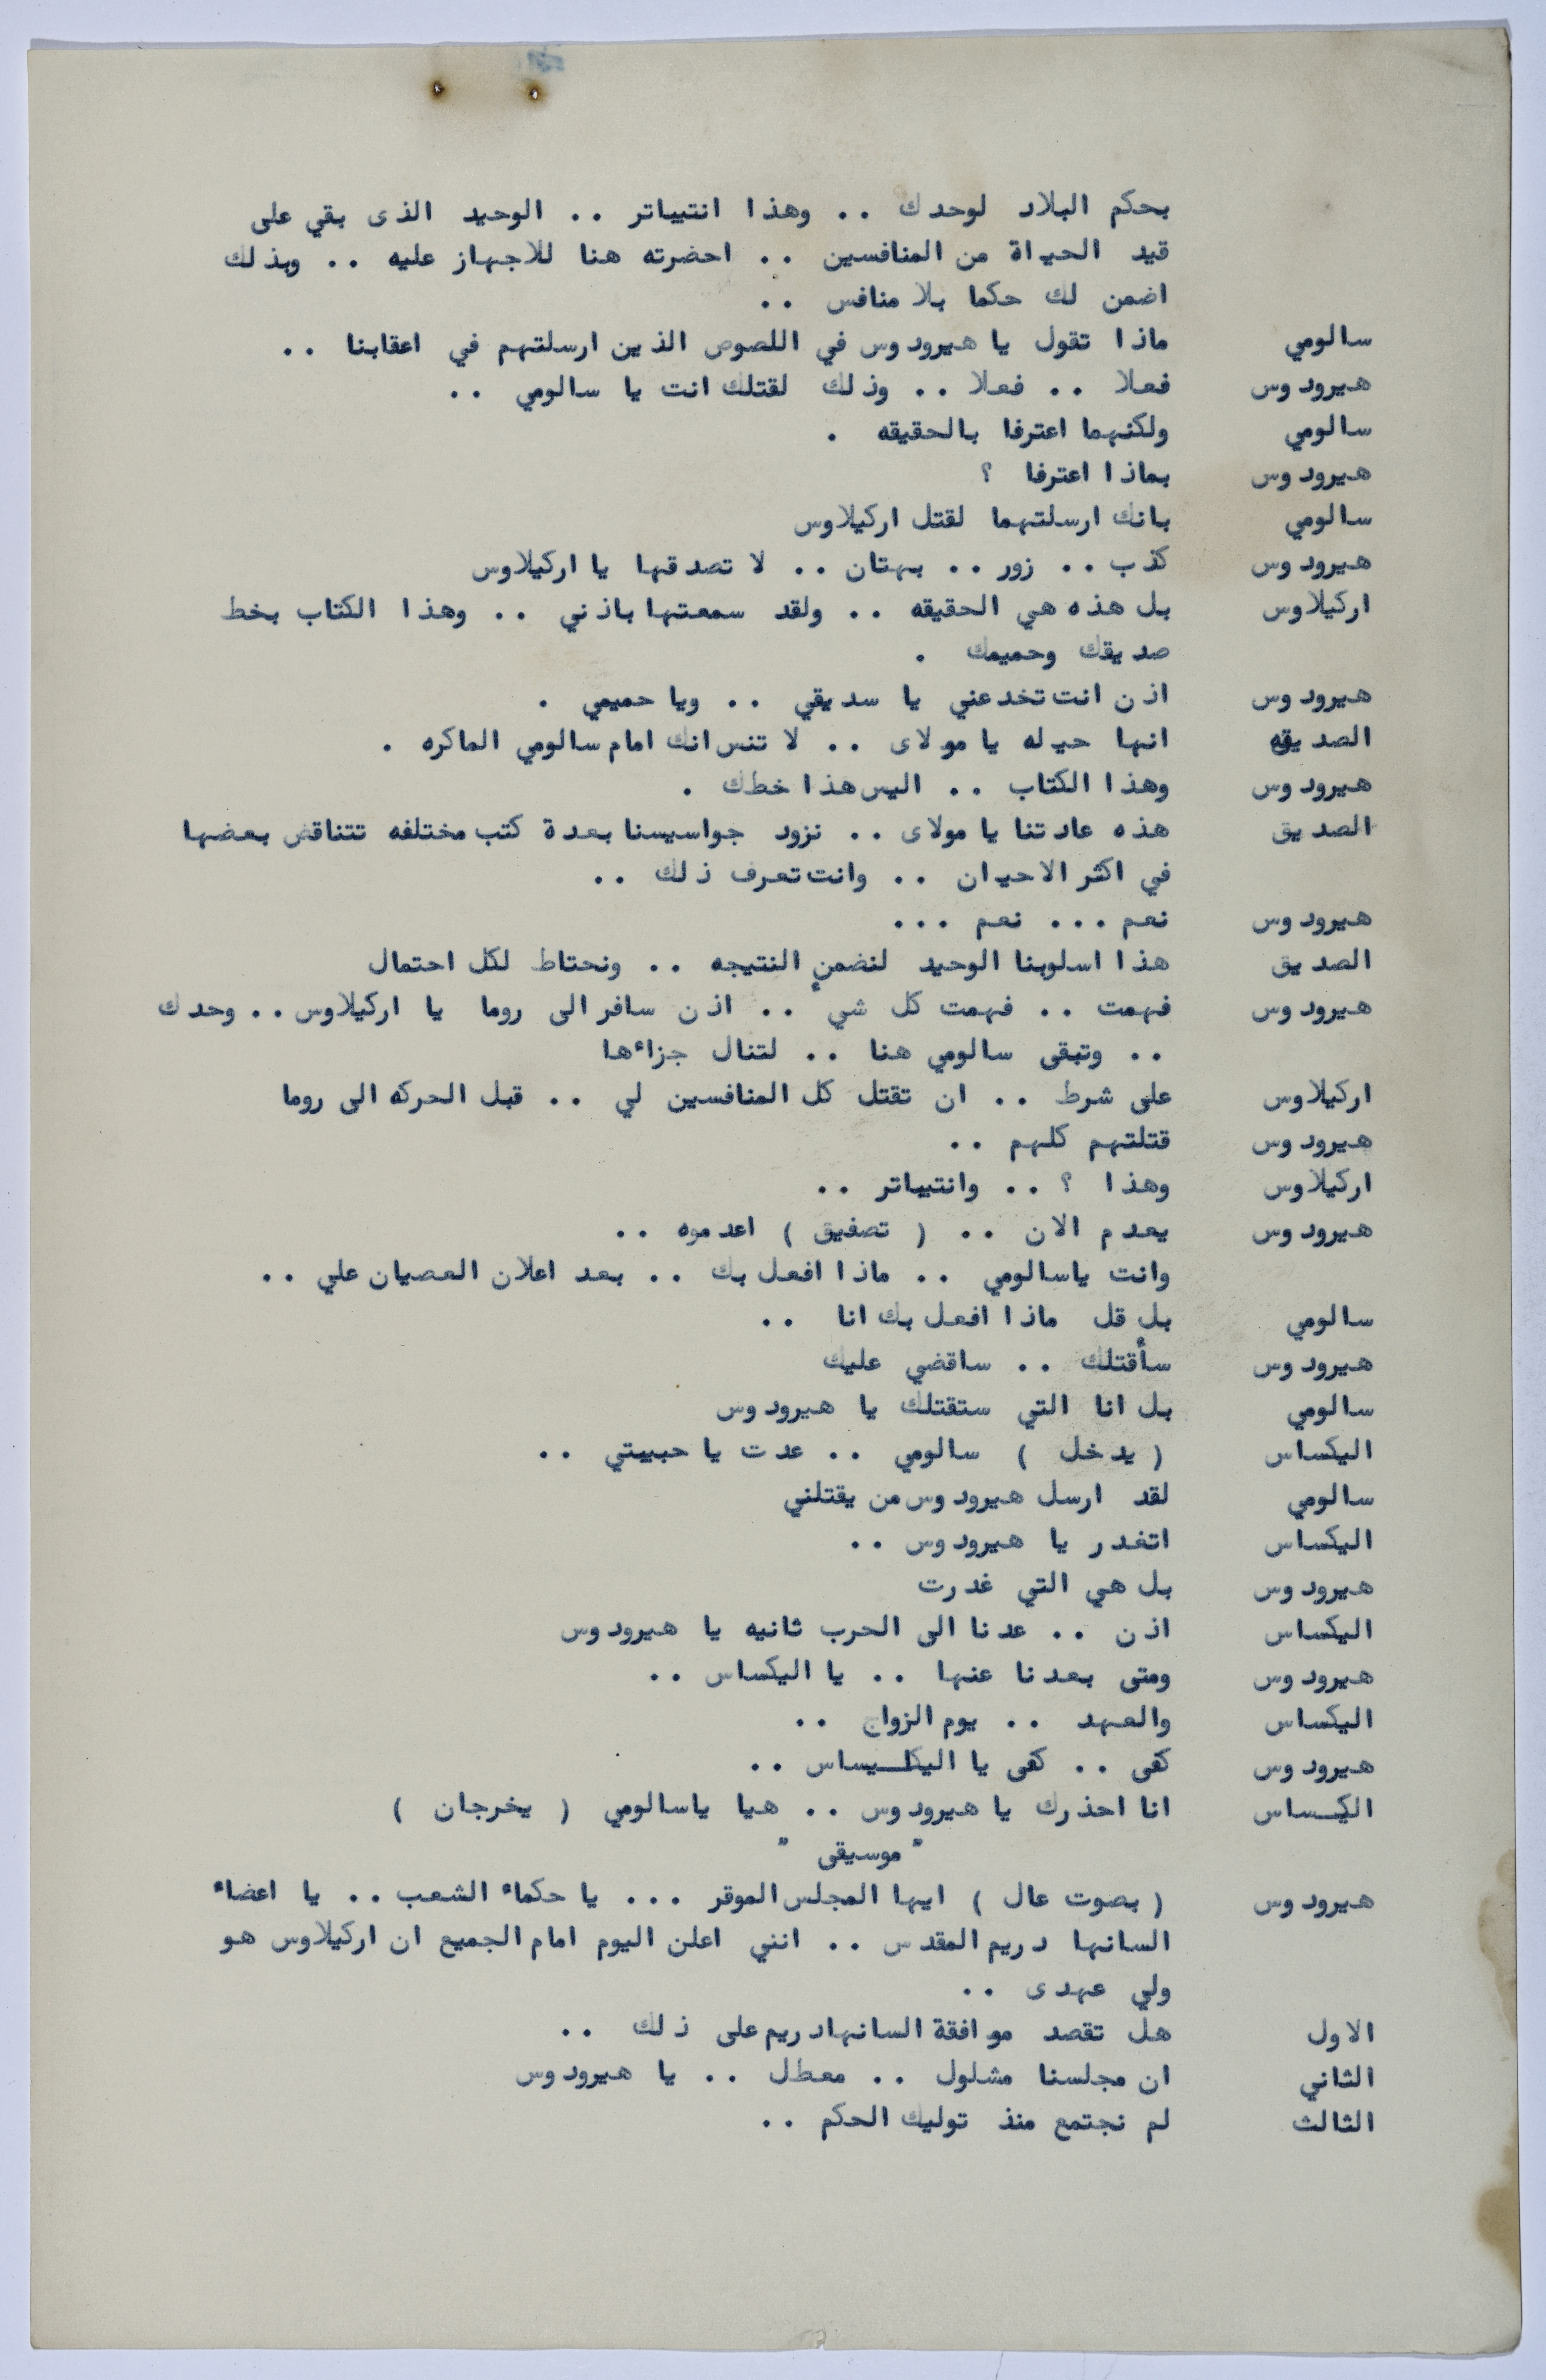 بحكم البلاد لوحدك .. وهذا انتيباتر .. الوحيد الذى بقي على
قيد الحياة من المنافسين .. احضرته هنا للاجهاز عليه .. وبذلك
اضمن لك حكما بلا منافس ..
سالومي ماذا تقول يا هيرودوس في اللصوص الذين ارسلتهم في اعقابنا ..
هيرودوس فعلا .. فعلا .. وذلك لقتلك انت يا سالومي ..
سالومي ولكنهما اعترفا بالحقيقه .
هيرودوس بماذا اعترفا ؟
سالومي بانك ارسلتهما لقتل اركيلاوس
هيرودوس كذب .. زور .. بهتان .. لا تصدقها يا اركيلاوس
اركيلاوس بل هذه هي الحقيقه .. ولقد سمعتها باذني .. وهذا الكتاب بخط
صديقك وحميمك .
هيرودوس اذن انت تخدعني يا سديقي .. ويا حميمي .
الصديقه انها حيله يا مولاى .. لا تنس انك امام سالومي الماكره .
هيرودوس وهذا الكتاب .. اليس هذا خطك .
الصديق هذه عادتنا يا مولاى .. نزود جواسيسنا بعدة كتب مختلفه تتناقض بعضها
في اكثر الاحيان .. وانت تعرف ذلك ..
هيرودوس نعم ... نعم ...
الصديق هذا اسلوبنا الوحيد لنضمن النتيجه .. ونحتاط لكل احتمال
هيرودوس فهمت .. فهمت كل شيء .. اذن سافر الى روما يا اركيلاوس .. وحدك
.. وتبقى سالومي هنا .. لتنال جزاءها
اركيلاوس على شرط .. ان تقتل كل المنافسين لي .. قبل الحركه الى روما
هيرودوس قتلتهم كلهم ..
اركيلاوس وهذا ؟ .. وانتيباتر ..
هيرودوس يعدم الان .. ( تصفيق ) اعدموه ..
وانت ياسالومي .. ماذا افعل بك .. بعد اعلان العصيان علي ..
سالومي بل قل ماذا افعل بك انا ..
هيرودوس سأقتلك .. ساقضي عليك
سالومي بل انا التي ستقتلك يا هيرودوس
اليكساس ( يدخل ) سالومي .. عدت يا حبيبتي ..
سالومي لقد ارسل هيرودوس من يقتلني
اليكساس اتغدر يا هيرودوس ..
هيرودوس بل هي التي غدرت
اليكساس اذن .. عدنا الى الحرب ثانيه يا هيرودوس
هيرودوس ومتى بعدنا عنها .. يا اليكساس ..
اليكساس والعهد .. يوم الزواج ..
هيرودوس كفى .. كفى يا اليكـيساس ..
اليكـساس انا احذرك يا هيرودوس .. هيا ياسالومي ( يخرجان )
" موسيقى "
هيرودوس ( بصوت عال ) ايها المجلس الموقر ... يا حكماء الشعب .. يا اعضاء
السانها دريم المقدس .. انني اعلن اليوم امام الجميع ان اركيلاوس هو
ولي عهدى ..
الاول هل تقصد موافقة السانهادريم على ذلك ..
الثاني ان مجلسنا مشلول .. معطل .. يا هيرودوس
الثالث لم نجتمع منذ توليك الحكم ..